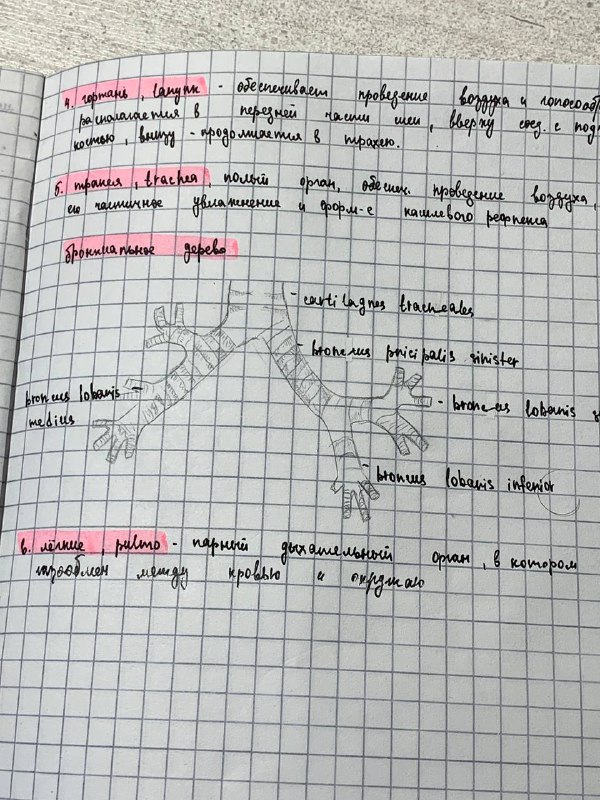 4. гортань, larynx - обеспечивает проведение воздуха и голосообр
располагается в передней части шеи, вверху соед. с под
костью, внизу - продолжается в трахею.
5. трахея, trachea, полый орган, обеспеч. проведение воздуха,
его частичное увлажнение и форм-е кашлевого рефлекса
бронхиальное дерево
cartilagnes tracheales
bronchus pricipalis sinister
bronchus lobaris
medius
bronchus lobaris s
bronchus lobaris inferior
6. лёгкие, pulmo - парный дыхательный орган, в котором
газообмен между кровью и окружаю